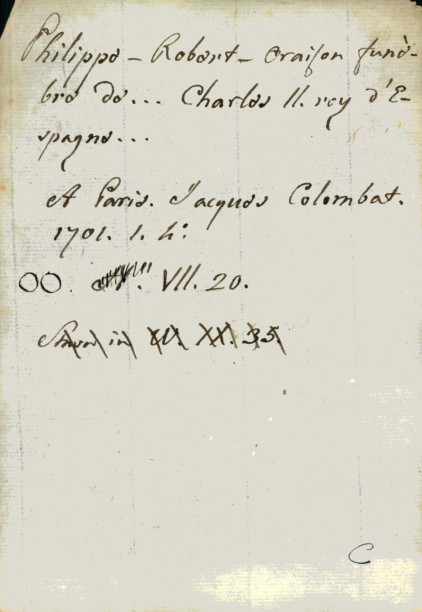 Philippe - Robert - oraison funè-
bre de... Charles II. roy d'E-
spagne...
A Paris. Jacques Colombat.
1701. 1. 4°.
OO. VII. 20.
in XX. 35
C